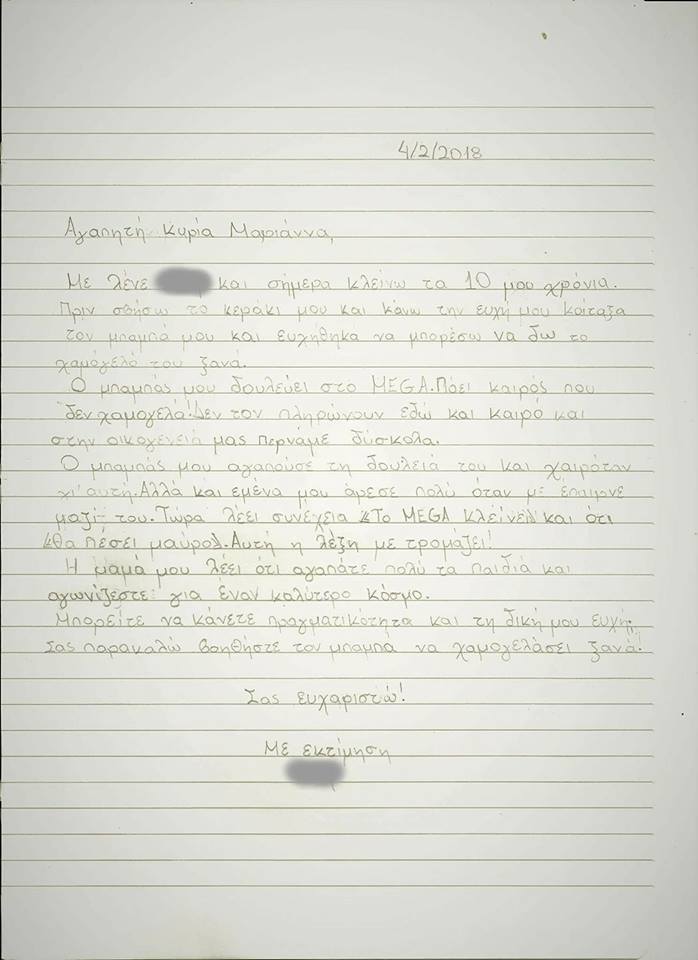 4/2/2018
Αγαπητή Κυρία Μαριάννα,
Με λένε και σήμερα κλείνω τα 10 μου χρόνια.
Πριν σβήσω το κεράκι μου και κάνω την ευχή μου κοίταξα
τον μπαμπά μου και ευχήθηκα να μπορέσω να δω το
χαμόγελό του ξανά.
Ο μπαμπάς μου δουλεύει στο MEGA. Πάει καιρός που
δεν χαμογελά! Δεν τον πληρώνουν εδώ και καιρό και
στην οικογένειά μας περνάμε δύσκολα.
Ο μπαμπάς μου αγαπούσε τη δουλειά του και χαιρόταν
γι'αυτή. Αλλά και εμένα μου άρεσε πολύ όταν με έπαιρνε
μαζί του. Τώρα λέει συνέχεια «Το MEGA κλείνει» και ότι
«θα πέσει μαύρο». Αυτή η λέξη με τρομάζει!
Η μαμά μου λέει ότι αγαπάτε πολύ τα παιδιά και
αγωνίζεστε για έναν καλύτερο κόσμο.
Μπορείτε να κάνετε πραγματικότητα και τη δική μου ευχή;
Σας παρακαλώ βοηθήστε τον μπαμπα να χαμογελάσει ξανά!
Σας ευχαριστώ!
Με εκτίμηση